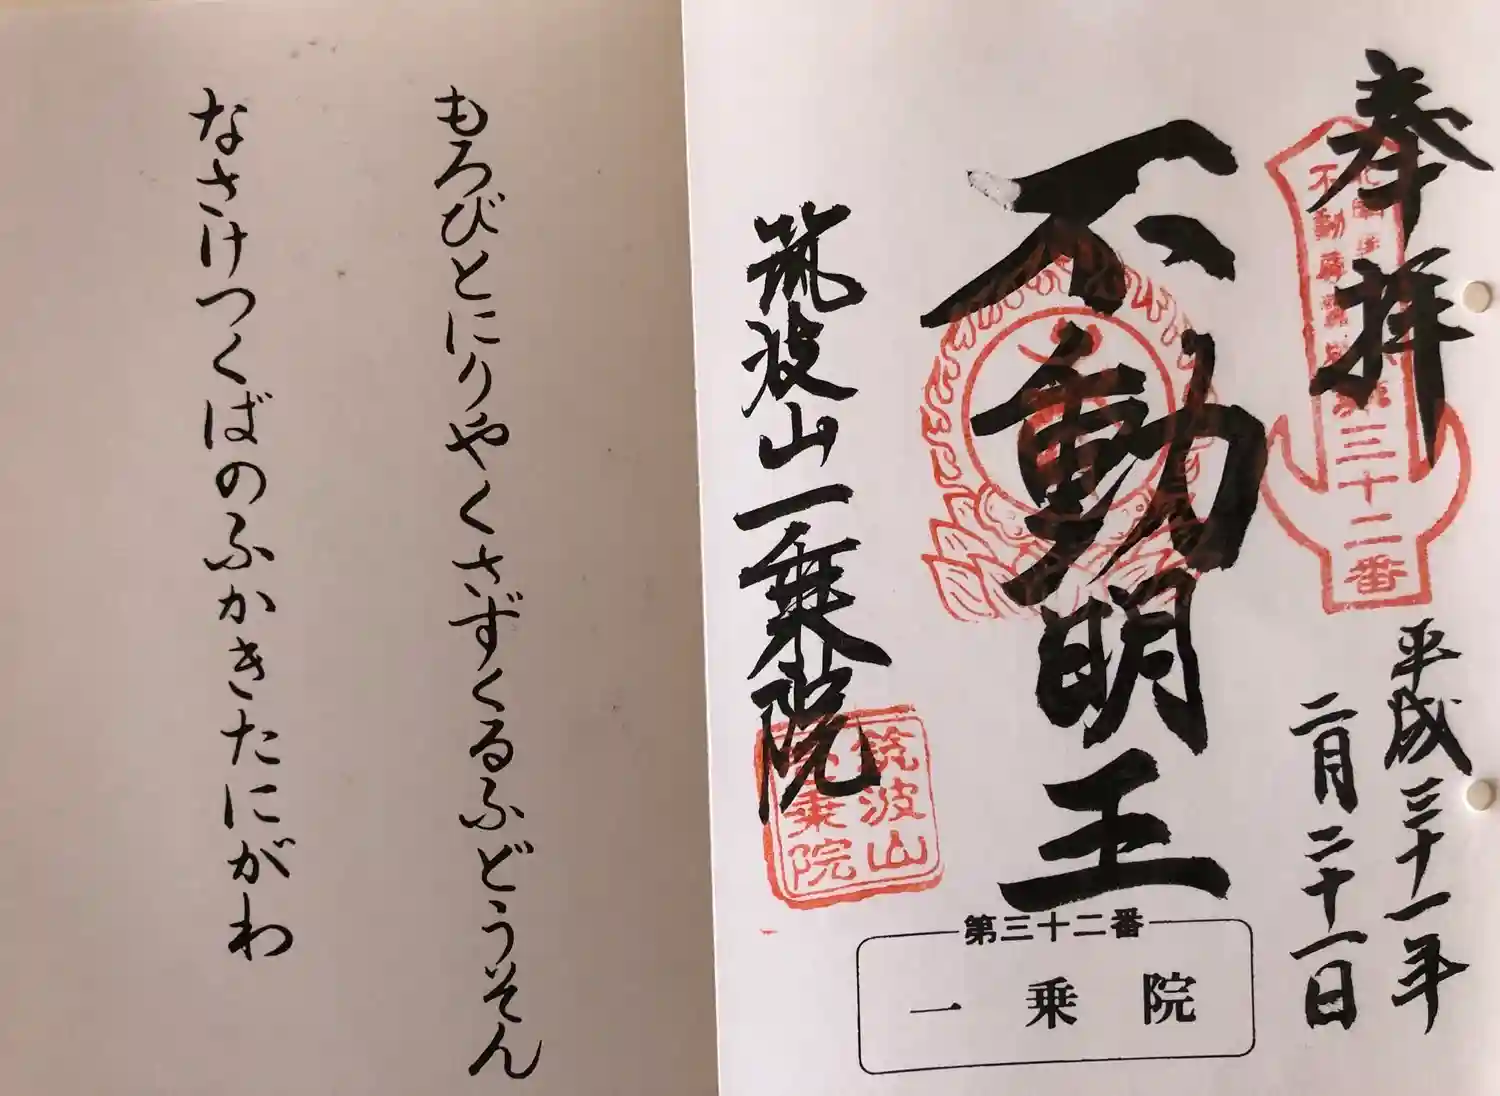 奉拝
平成三十一年
二月二十一日
不動明王
筑波山一乗院
第三十二番
筑波山
乗院
第三十二番
一乗院
もろびとにりやくさずくるふどうそん
なさけつくばのふかきたにがわ